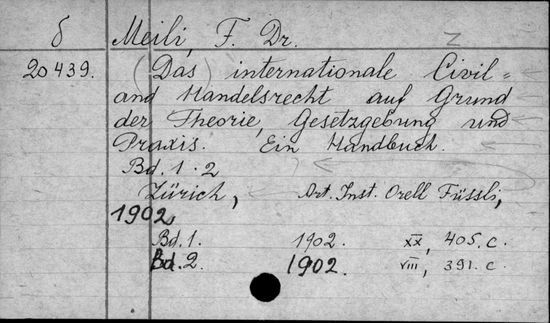 δ Meili, F. Dr.
20439. (Das) internationale Civil=
and Handelsrecht auf Grund
der Theorie, Gesetzgebung und
Praxis. Ein Handbuch.
Bd. 1-2
Zürich, Art. Inst. Orell Füssli,
1902
Bd. 1. 1902. XX, 405. c.
Bd. 2. 1902. VIII, 391. c.